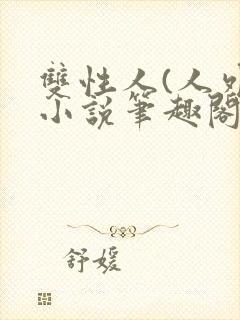 雙性人(人
小說筆趣閣
舒媛